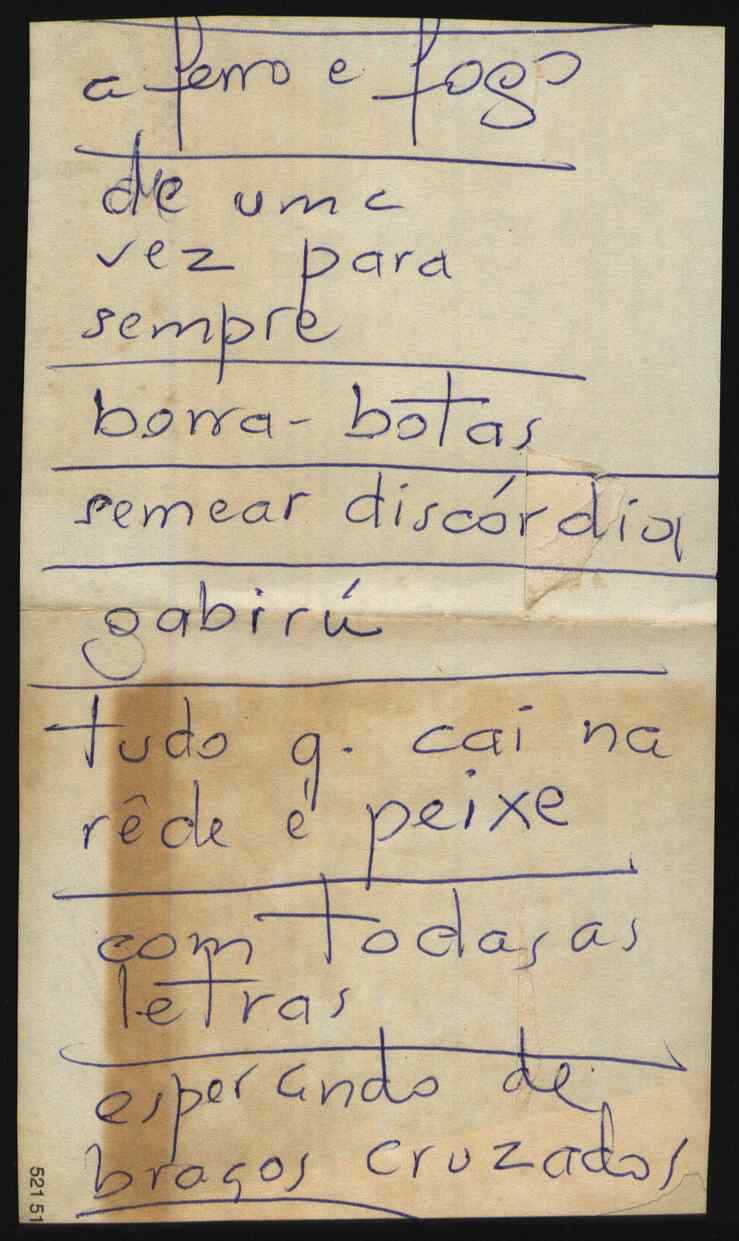 a ferro e fogo
de uma
vez para
sempre
borra-botas
semear discórdia
gabirú
tudo q. cai na
rêde é peixe
com todas as
letras
esperando de
braços cruzados
52151